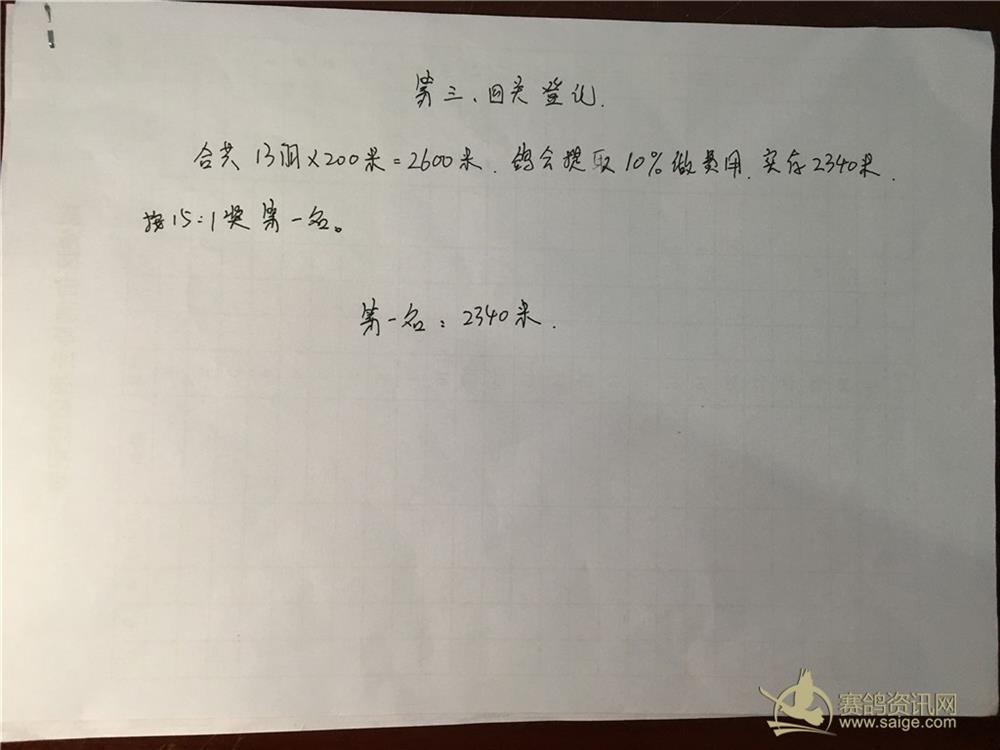 第三、四关登记.
合共13羽×200米=2600米.鸽会提取10%做费用.实存2340米.
按15:1奖第一名。
第一名:2340米.
赛鸽资讯网
www.saige.com